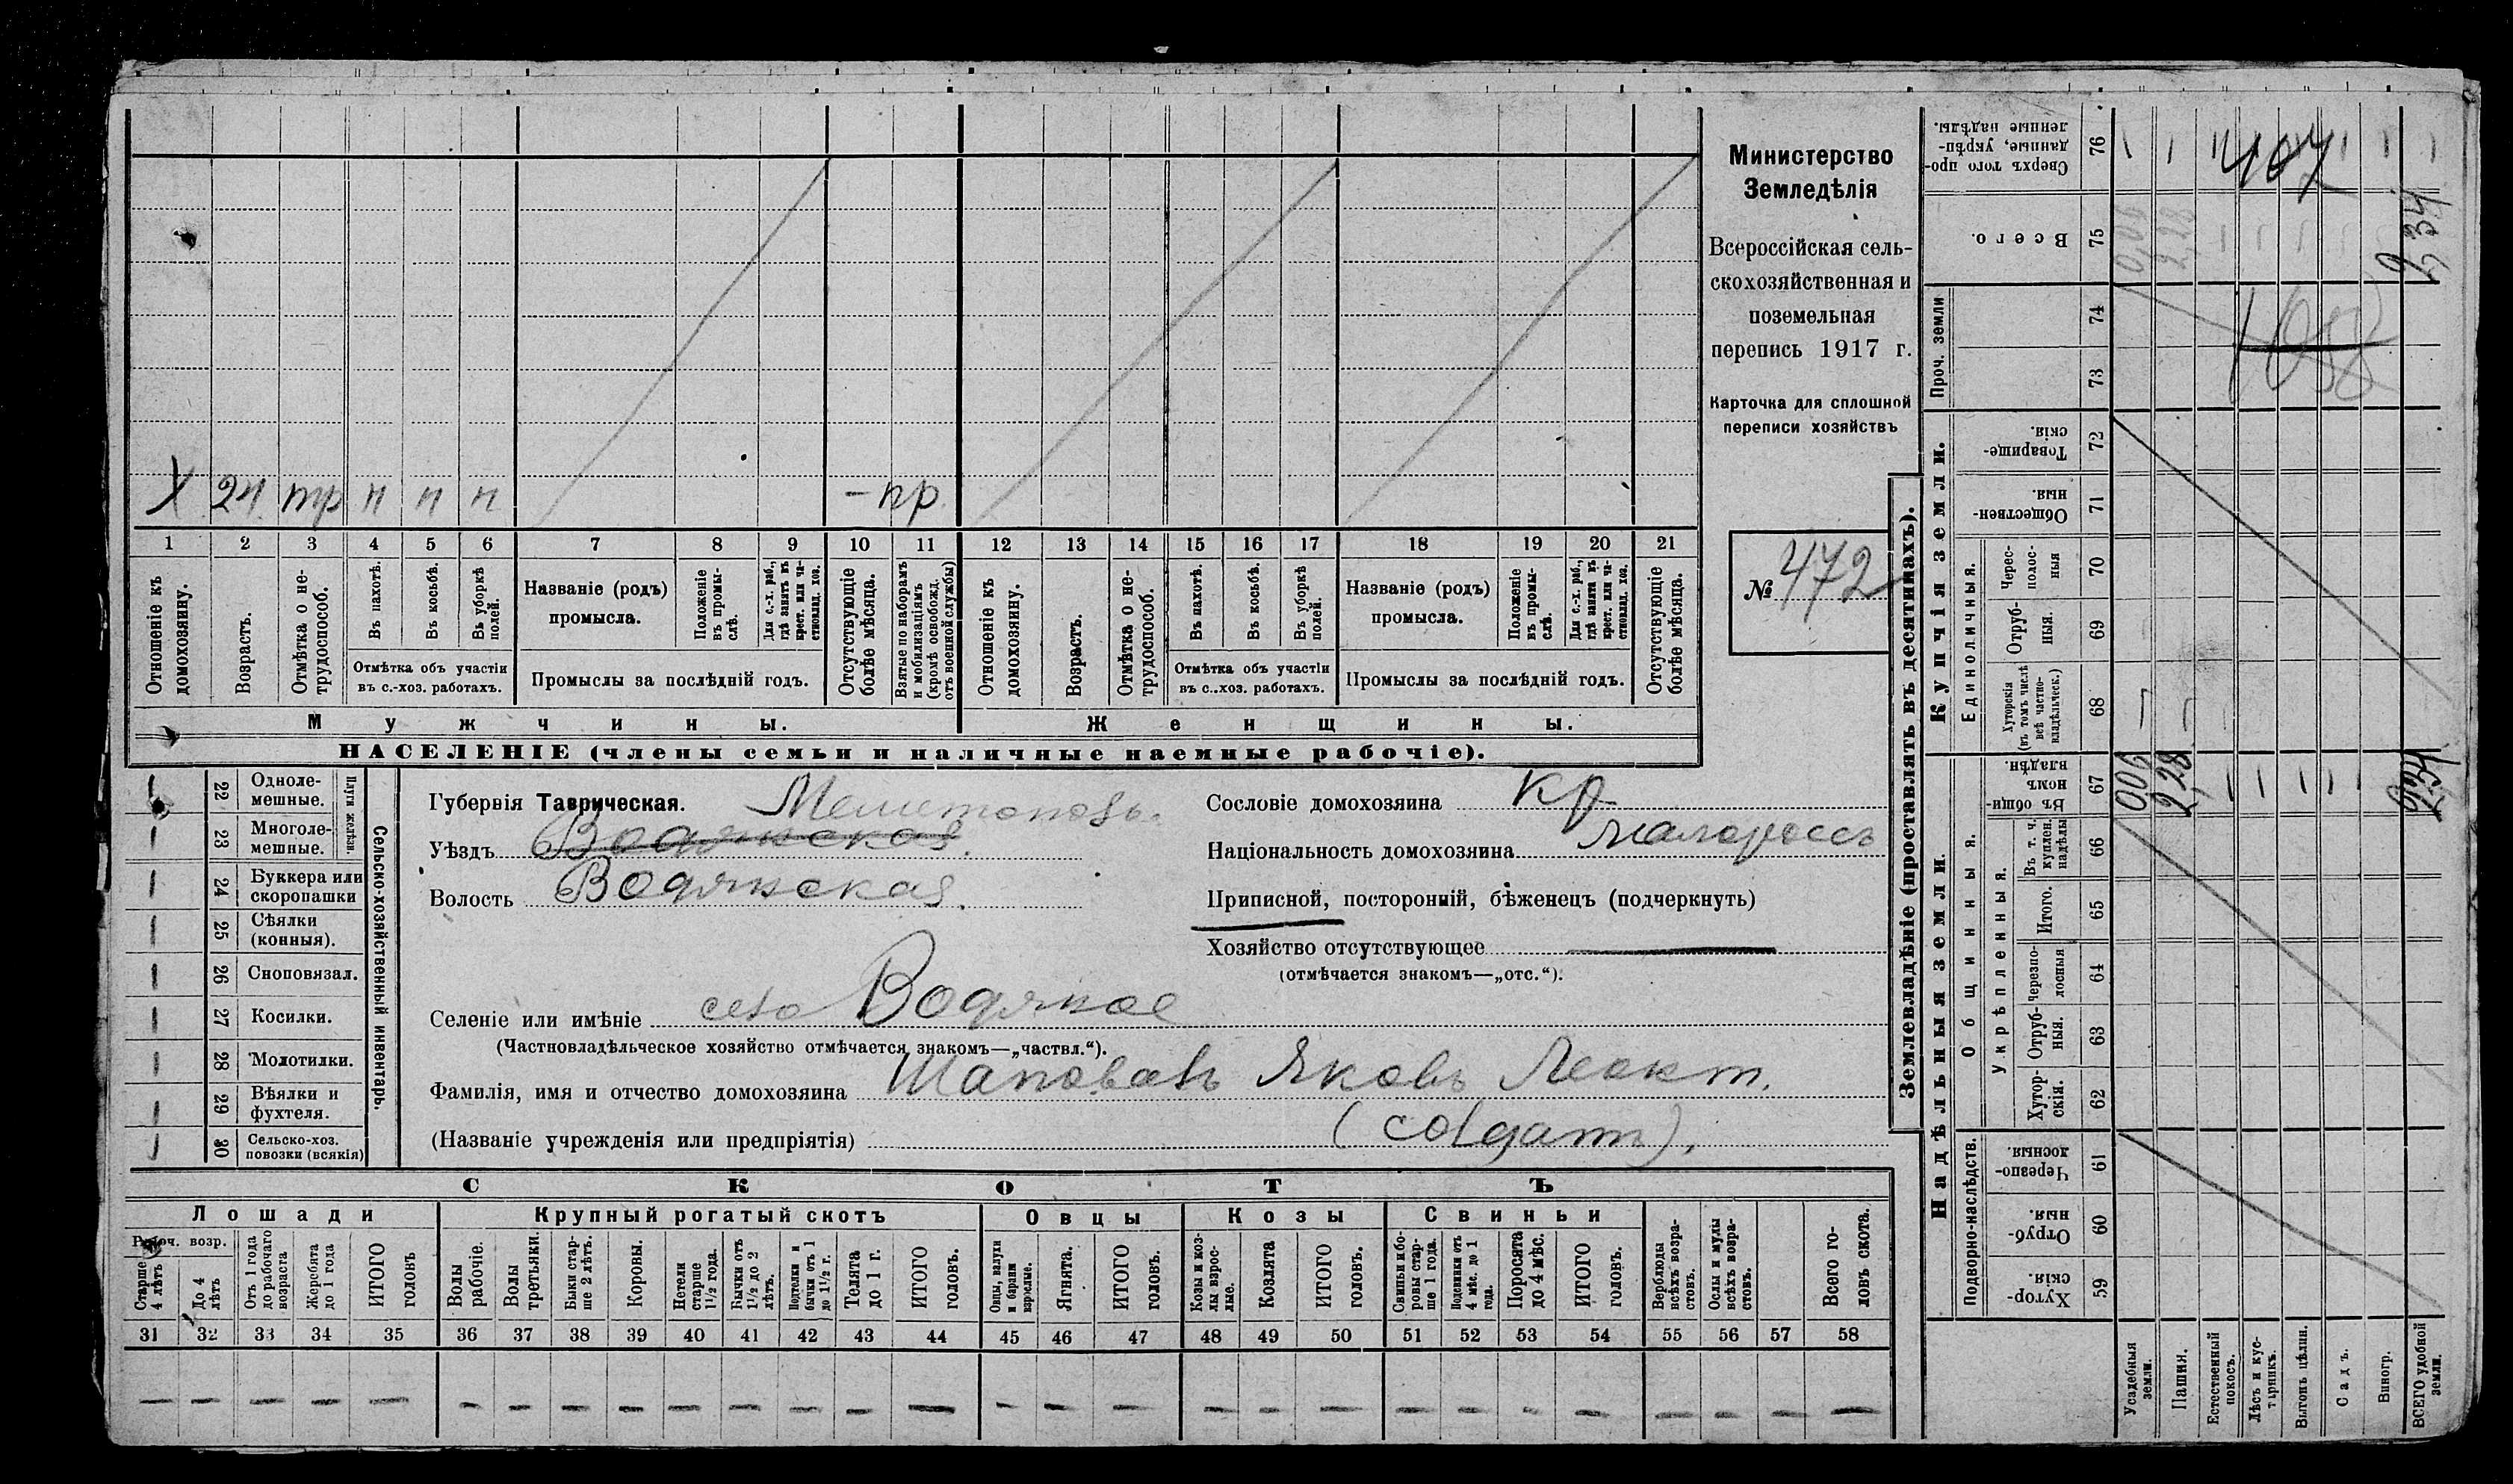 Х 24 тр н н н – пр.
1 2 3 4 5 6 7 8 9 10 11 12 13 14 15 16 17 18 19 20 21
Отношеніе къ домохозяину.
Возрастъ.
Отмѣтка о не-
трудоспособ.
Въ пахотѣ.
Въ косьбѣ.
Въ уборкѣ
полей.
Отмѣтка объ участіи
въ с.-хоз. работахъ.
Названіе (родъ)
промысла.
Положеніе
въ промы-
слѣ.
Для с.-х. раб.,
гдѣ занятъ въ
крест. или ча-
стновлад. хоз.
Промыслы за послѣдній годъ.
Отсутствующіе
болѣе мѣсяца.
Взятые по наборамъ
и мобилизаціямъ
(кромѣ освобожд.
отъ военной службы)
Отношеніе къ
домохозяину.
Возрастъ.
Отмѣтка о не-
трудоспособ.
Въ пахотѣ.
Въ косьбѣ.
Въ уборкѣ
полей.
Отмѣтка объ участіи
въ с..хоз. работахъ.
Названіе (родъ)
промысла.
Положеніе
въ промы-
слѣ.
Для с.-х. раб.,
гдѣ занята въ
крест. или ча-
стновлад. хоз.
Промыслы за послѣдній годъ.
Отсутствующіе
болѣе мѣсяца.
Мужчины.
Женщины.
НАСЕЛЕНІЕ (члены семьи и наличные наемные рабочіе).
Министерство
Земледѣлія
Всероссійская сель-
скохозяйственная и
поземельная
перепись 1917 г.
Карточка для сплошной
переписи хозяйствъ
№ 472
22 Одноле-
мешные.
23 Многоле-
мешные.
Плуги желѣзн.
24 Буккера или
скоропашки
25 Сѣялки
(конныя).
26 Сноповязал.
27 Косилки.
28 Молотилки.
29 Вѣялки и
фухтеля.
30 Сельско-хоз.
повозки (всякія)
Сельско-хозяйственный инвентарь.
Губернія Таврическая.
Мелитополь.
Уѣздъ Водянская.
Волость Водянская.
Сословіе домохозяина кр
Національность домохозяина малороссъ
Приписной, посторонній, бѣженецъ (подчеркнуть)
Хозяйство отсутствующее
(отмѣчается знакомъ—„отс.“).
Селеніе или имѣніе село Водяное
(Частновладѣльческое хозяйство отмѣчается знакомъ—„частвл.“).
Фамилія, имя и отчество домохозяина Шаповалъ Яковъ Леокт.
(Названіе учрежденія или предпріятія) (солдатъ).
СКОТЪ
Лошади
Рабоч. возр.
Старше
4 лѣтъ
До 4
лѣтъ
Отъ 1 года
до рабочаго
возраста
Жеребята
до 1 года
ИТОГО
головъ
Крупный рогатый скотъ
Волы
рабочіе.
Волы
третьяки.
Быки стар-
ше 2 лѣтъ.
Коровы.
Нетели
старше
1½ года.
Бычки отъ
1½ до 2
лѣтъ.
Подтелки и
бычки отъ 1
до 1½ г.
Телята
до 1 г.
ИТОГО
головъ.
Овцы
Овцы, валухи
и бараны
взрослые.
Ягнята.
ИТОГО
головъ.
Козы
Козы и коз-
лы взрос-
лые.
Козлята
ИТОГО
головъ.
Свиньи
Свиньи и бо-
ровы стар-
ше 1 года.
Подсвинки отъ
4 мѣс. до 1
года.
Поросята
до 4 мѣс.
ИТОГО
головъ.
Верблюды
всѣхъ возра-
стовъ.
Ослы и мулы
всѣхъ возра-
стовъ.
Всего го-
ловъ скота.
31 32 33 34 35 36 37 38 39 40 41 42 43 44 45 46 47 48 49 50 51 52 53 54 55 56 57 58
Землевладѣніе (проставлять въ десятинахъ).
Надѣльныя земли.
Купчія земли.
Проч. земли
Сверхъ того про-
данные, укрѣп-
ленные надѣлы.
76
407
Всего.
75
0,06 2,28
2,34
74
73
1058
Товарище-
скія.
72
Обществен-
ныя.
71
Единоличныя.
Черес-
полос-
ныя
70
Отруб-
ныя.
69
Хуторскія
(въ томъ числѣ
всѣ частно-
владѣльческ.)
68
Въ общин-
номъ
владѣн.
67
006 2,28
Общинныя.
Укрѣпленныя.
Въ т. ч.
куплен.
надѣлы
66
Итого.
65
Черезпо-
лосныя
64
Отруб-
ныя.
63
Хутор-
скія.
62
Подворно-наслѣдств.
Черезпо-
лосныя.
61
Отруб-
ныя.
60
Хутор-
скія.
59
Усадебныя
земли.
Пашня.
Естественный
покосъ.
Лѣсъ и кус-
тарникъ.
Выгонъ цѣлин.
Садъ.
Виногр.
ВСЕГО удобной
земли.